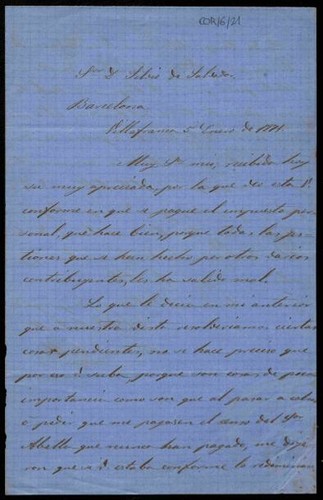 COR/6/21
Sr. D. Silvio de
Barcelona
Villafranca 5 Enero de 1881.
Muy Sr mio, recibido hoy
su muy apreciada, por la que dice esta V.
conforme en que se pague el impuesto per
sonal, que hace bien, porque todas las ges
tiones que se han hecho por otros varios
contribuyentes, les ha salido mal.
Lo que le decia en mi anterior
que a nuestra vista resolveriamos ciertas
cosas pendientes, no se hace preciso que
por eso V. suba, porque son cosas de poca
importancia como son que al pasar a
o pedir que me pagasen el censo del Sr.
Abella que nunca han pagado, me dige
ron que V. estaba conforme la